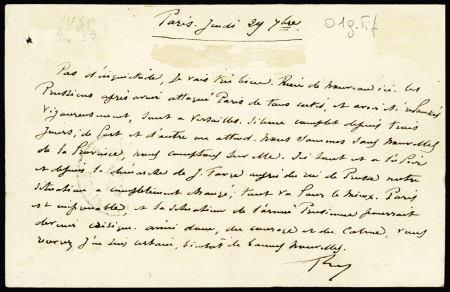 Paris. Jeudi 29 7bre
Pas d'inquiétude, je vais très bien. Rien de nouveau ici. les
Prussiens après avoir attaqué Paris de tous cotés, et avoir été
vigoureusement, sont à Versailles. Silence complet depuis trois
jours; de part et d'autre on attend. Nous sommes sans nouvelles
de la Province, nous comptons sur elle. Ici tout est à la
et depuis la démarche de J. Favre auprès du roi de Prusse notre
situation a complètement changé; tout va pour le mieux. Paris
est imprenable et la situation de l'armée Prussienne pourrait
devenir critique. ainsi donc, du courage et du calme, vous
aurez j'en suis certain, bientôt de bonnes nouvelles.